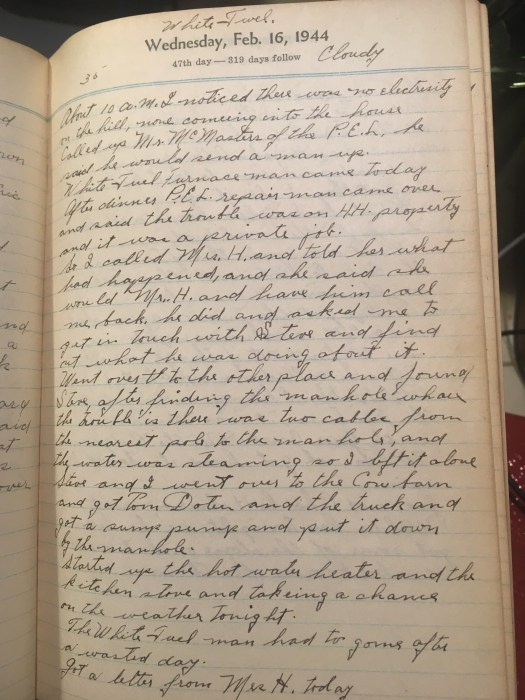 White-Fuel.
Wednesday, Feb. 16, 1944
47th day — 319 days follow
Cloudy
36
About 10 a.m. I noticed there was no electrisity
on the hill, none comeing into the house
Called up Mr. McMasters of the P.E.L. he
said he would send a man up.
White-Fuel Furnace man came today
After dinner P.E.L. repair man came over
and said the trouble was on H.H. property
and it was a private job.
So I called Mrs. H. and told her what
had happened, and she said she
would Mr. H. and have him call
me, back. he did and asked me to
get in touch with Steve and find
out what he was doing about it.
Went over to the other place and found
Steve, after finding the manhole whare
the trouble is there was two cables from
the nearest pole to the manhole, and
the water was steaming so I left it alone
Steve and I went over to the Cow barn
and got Tom Doten and the truck and
got a sump pump and put it down
by the manhole.
Started up the hot water heater and the
kitchen stove and takeing a chance
on the weather tonight.
The White-Fuel man had to gome after
a wasted day.
Got a letter from Mrs H. today